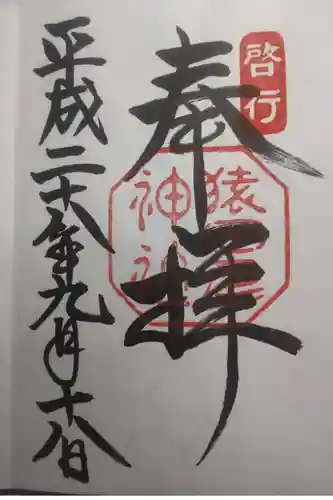 啓行
奉拝
猿田
神社
平成二十八年九月十八日